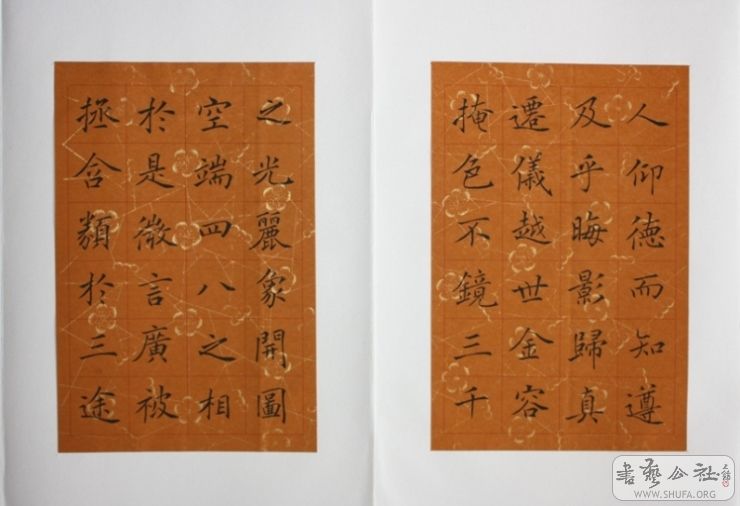 人仰德而知遵
及乎晦影歸真
遷儀越世金容
掩色不鏡三千
之光麗象開圖
空端四八之相
於是微言廣被
拯含類於三途
書藝公社
WWW.SHUFA.ORG